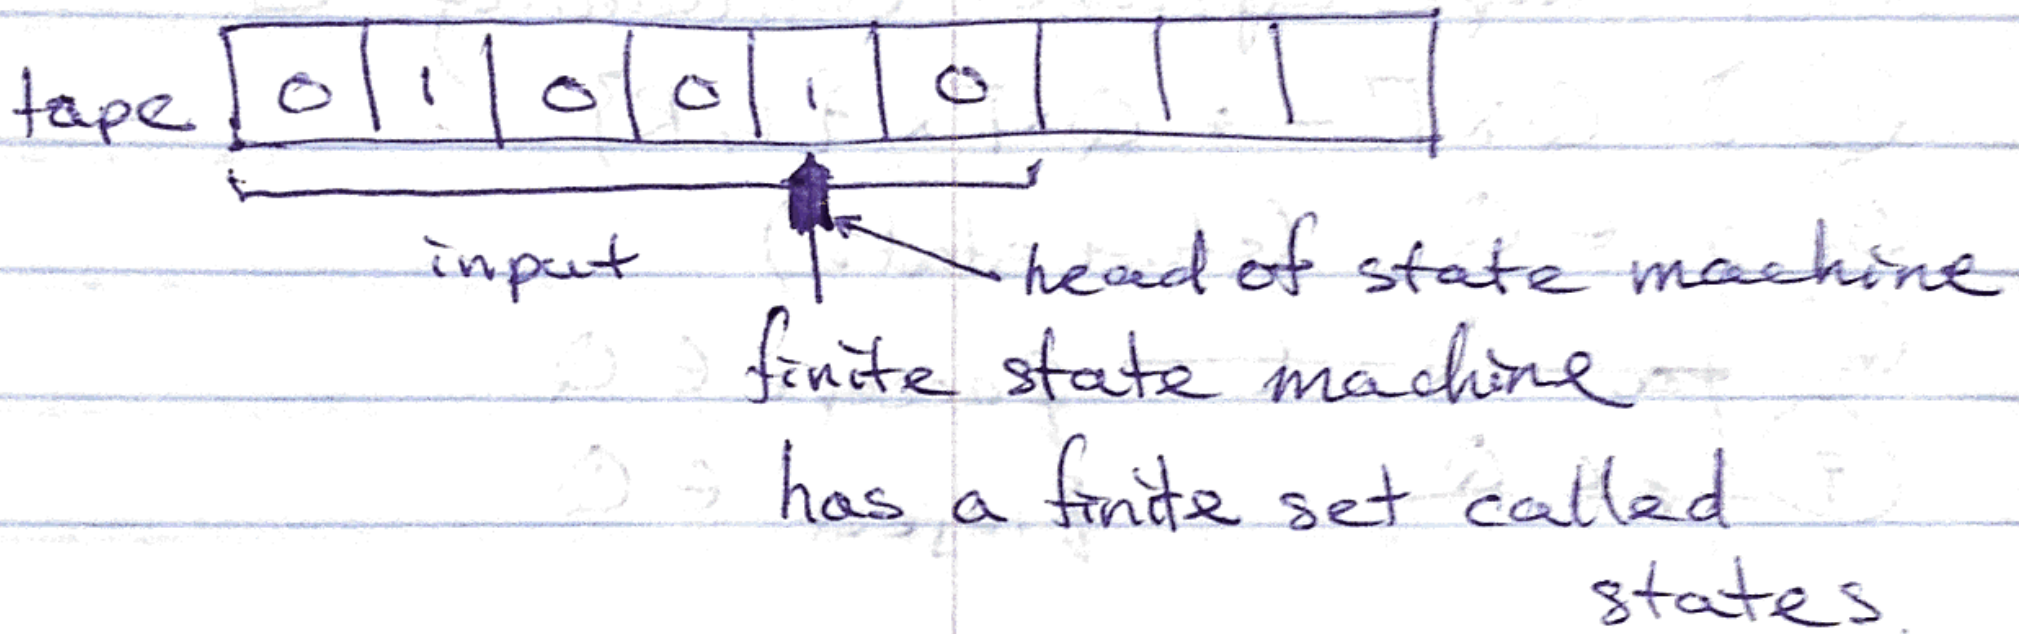 tape 0 1 0 0 1 0
input
head of state machine
finite state machine
has a finite set called
states.